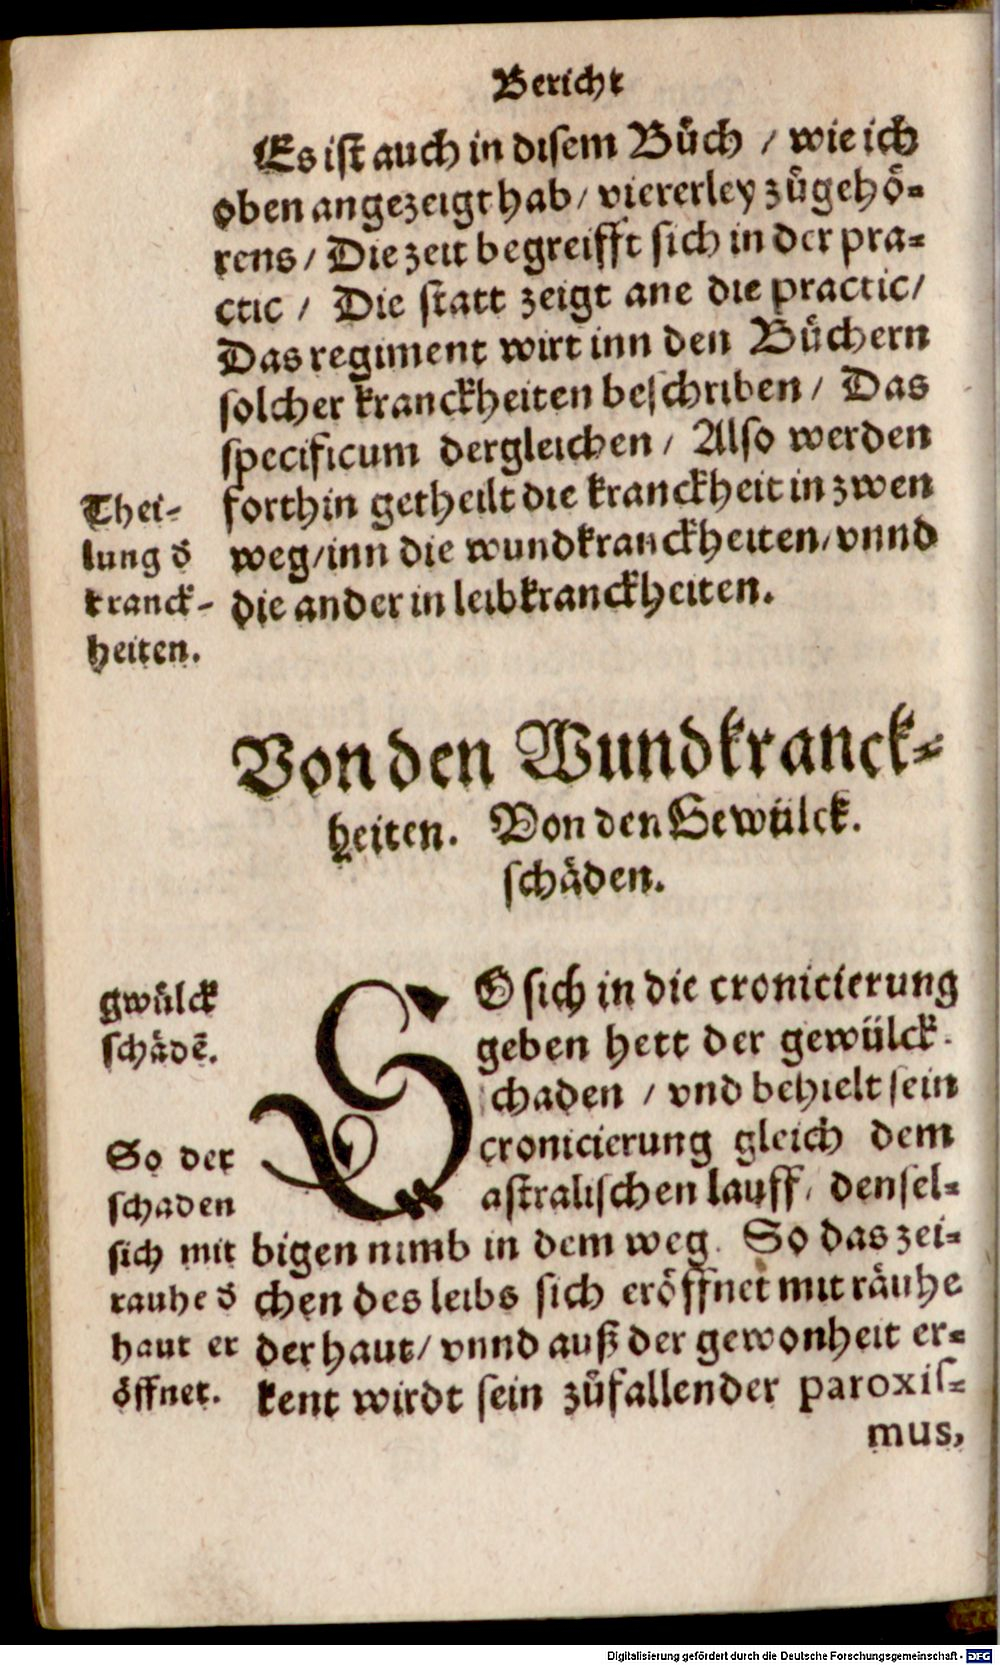 Bericht
Es ist auch in disem Bůch / wie ich
oben angezeigt hab / viererley zůgehö⸗
rens / Die zeit begreifft sich in der pra⸗
ctic / Die statt zeigt ane die practic /
Das regiment wirt inn den Büchern
solcher kranckheiten beschriben / Das
specificum dergleichen / Also werden
forthin getheilt die kranckheit in zwen
weg / inn die wundkranckheiten / vnnd
die ander in leibkranckheiten.
Thei⸗
lung d̕
kranck⸗
heiten.
Von den Wundkranck⸗
heiten. Von den Gewülck.
schäden.
gwülck
schädē.
SO sich in die cronicierung
geben hett der gewülck.
schaden / vnd behielt sein
cronicierung gleich dem
astralischen lauff / densel⸗
bigen nimb in dem weg. So das zei⸗
chen des leibs sich eröffnet mit räuhe
der haut / vnnd auß der gewonheit er⸗
kent wirdt sein zůfallender paroxis⸗
mus,
So der
schaden
sich mit
rauhe d̕
haut er
öffnet.
Digitalisierung gefördert durch die Deutsche Forschungsgemeinschaft - DFG